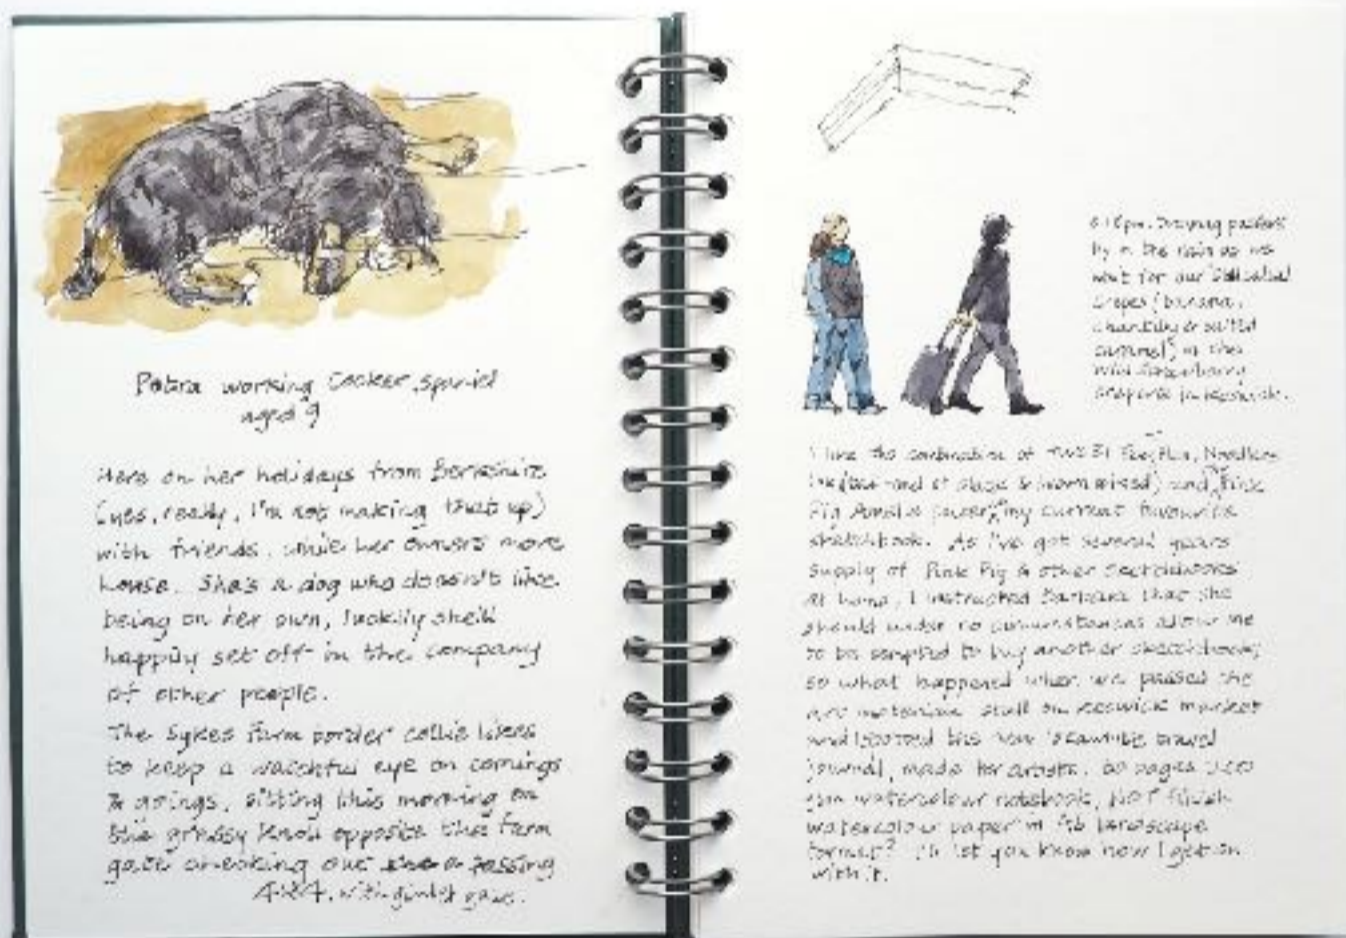 Petra working Cocker spaniel
aged 9
Here on her holidays from Berkshire
(yes, really, I'm not making that up)
with friends, while her owners move
house. She's a dog who doesn't like
being on her own, luckily she'll
happily set off in the company
of other people.
The Sykes Farm border collie likes
to keep a watchful eye on comings
& goings, sitting this morning on
the grassy knoll opposite the farm
gate checking out a passing
4x4, with gimlet gaze.
Drawing passers
by in the rain as we
wait for our
crepes (banana,
chantilly & salted
caramel) in the
Wild Strawberry
creperie in Keswick.
I like the combination of TWSBI Eco Pen, Noodlers
ink (blend of black & brown mixed) and Pink
Pig Ameleie paper, my current favourite
sketchbook. As I've got several years
supply of Pink Pig & other sketchbooks
at home, I instructed Barbara that she
should under no circumstances allow me
to be tempted to buy another sketchbook;
so what happened when we passed the
art materials stall on Keswick market
and spotted this new Seawhite travel
journal, made for artists, 60 pages
watercolour notebook, NOT finish
watercolour paper in landscape
format? I'll let you know how I get on
with it.